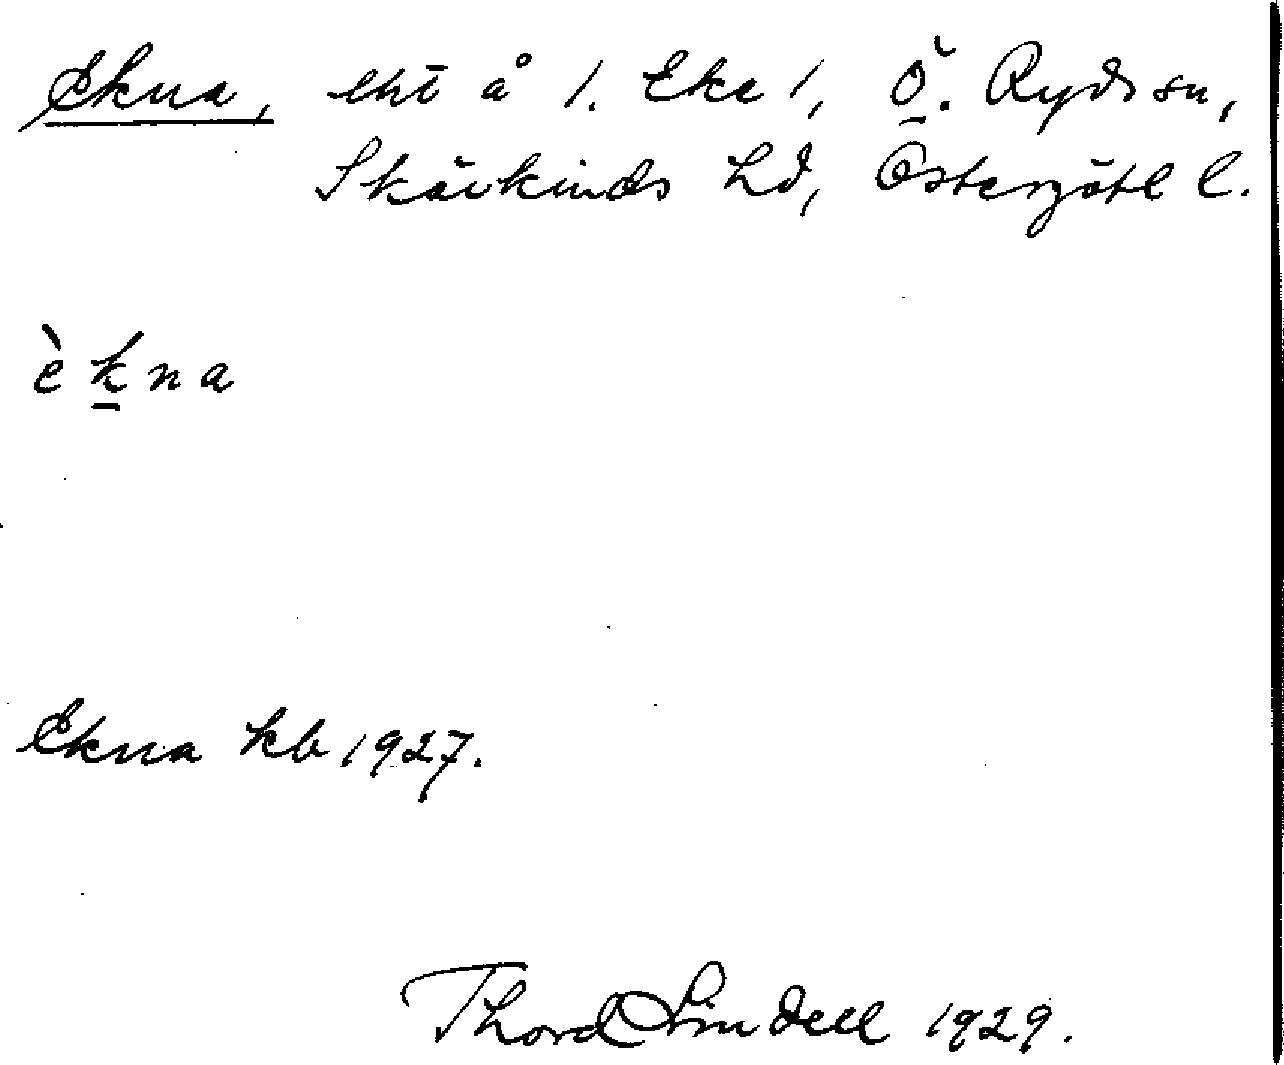 Ekna, lht å 1. Eke 1, Ö. Ryds sn,
Skärkinds hd, Östergötl l.
èkna
Ekna kb 1927.
Thord Lindell 1929.